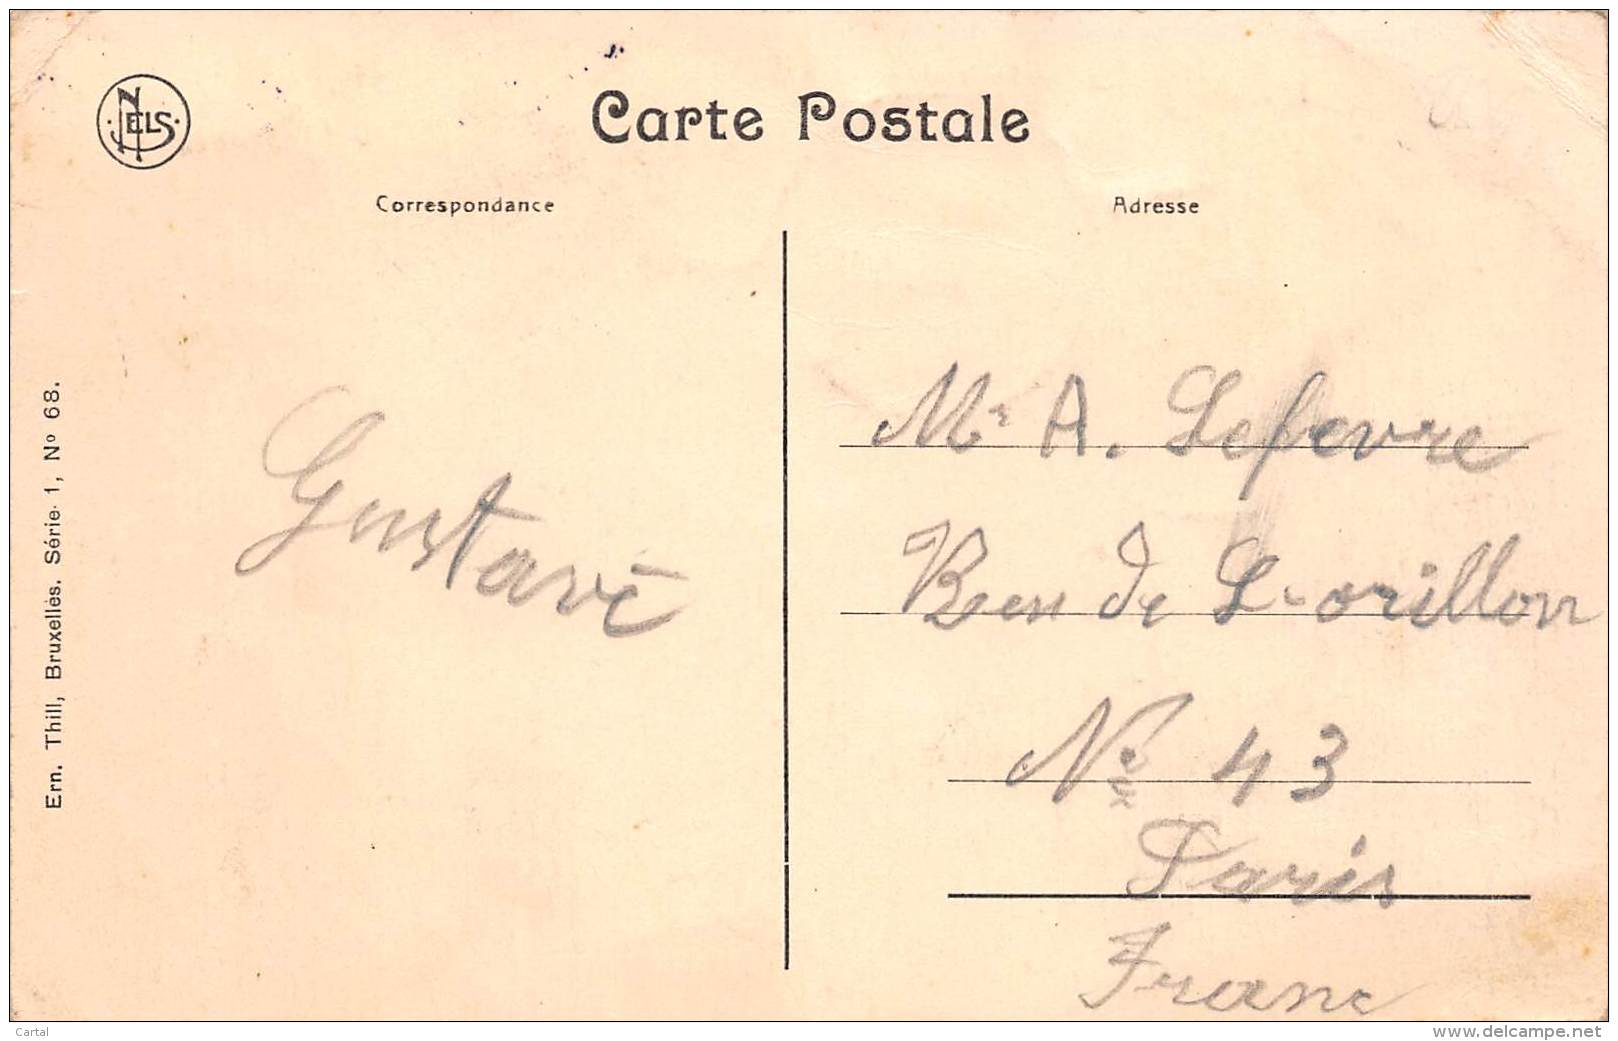 NELS
Carte Postale
Correspondance
Adresse
Ern. Thill, Bruxelles. Série 1, Nº 68.
Gustave
Mr A. Lefevre
de L orillon
Nº 43
Paris
Franc
Cartal
www.delcampe.net